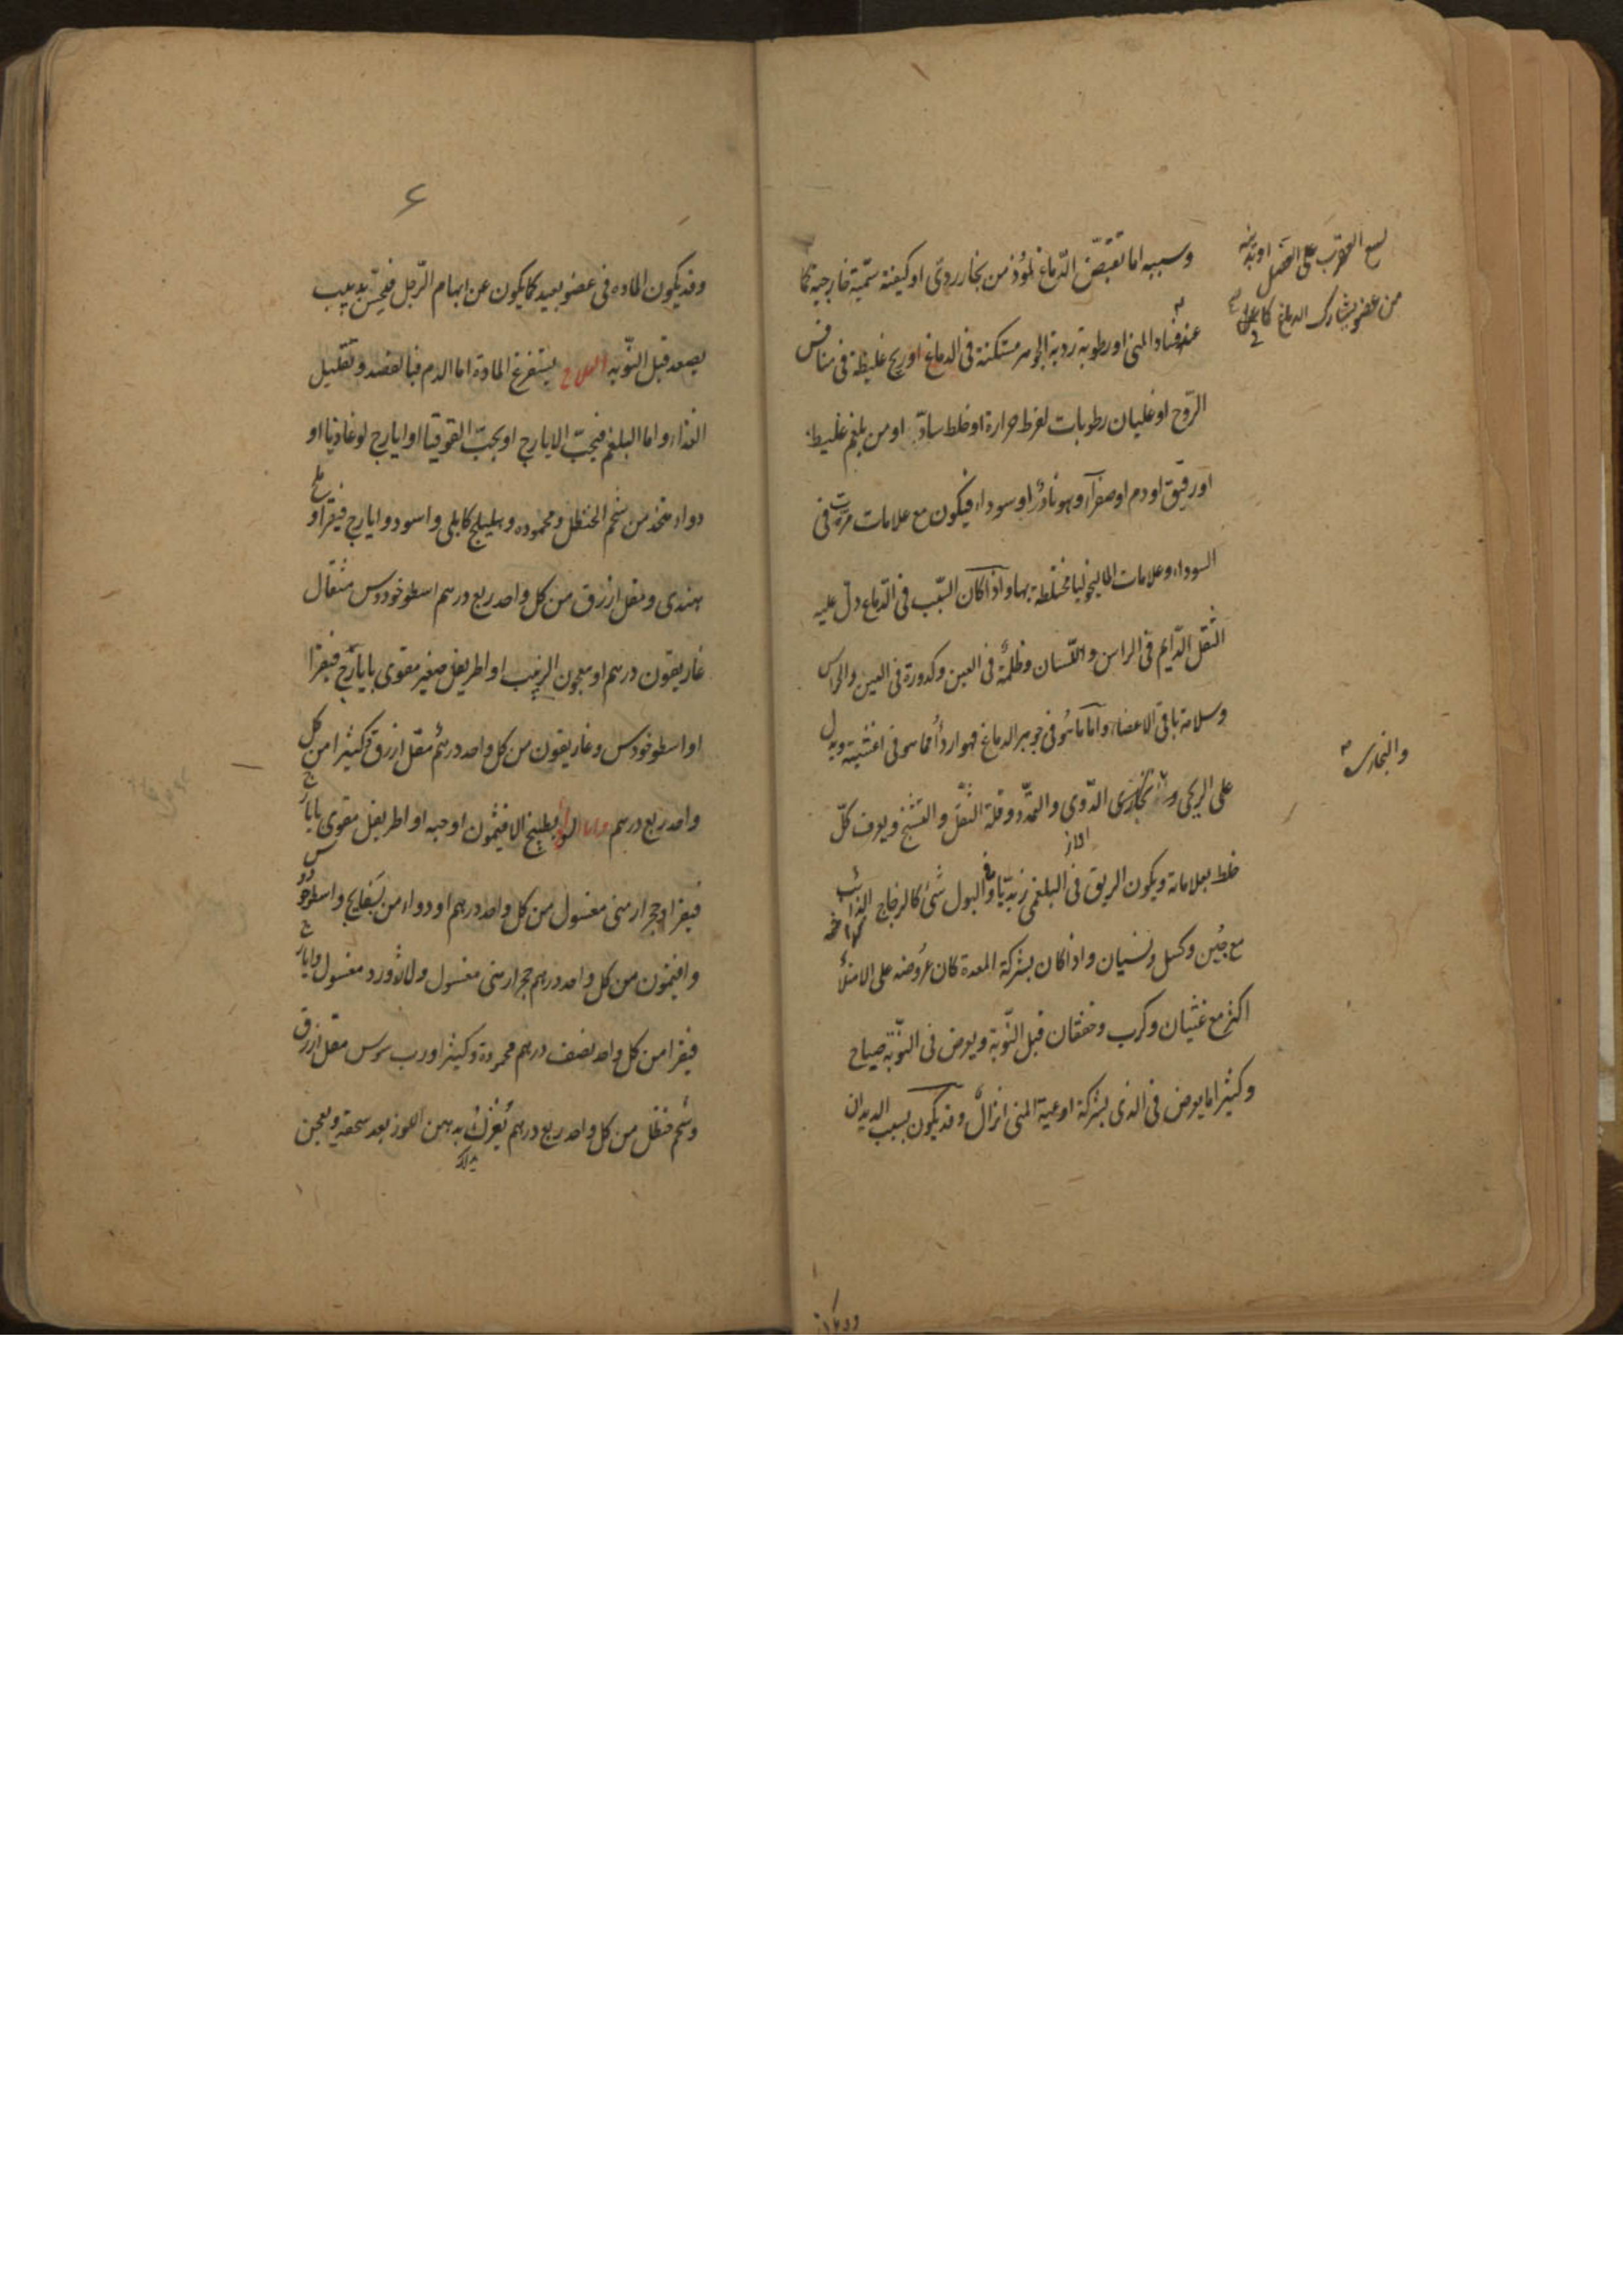 وسببه اما تقبض الدماغ لموذ من بخار ردى او كيفية سمية خارجية كما
لسع العقرب على العصل او بدنية
من عضو يشارك الدماغ كما
عند فساد المنى او رطوبة ردية الجوهر مستكنة فى الدماغ او ريح غليظة فى منافس
الروح او غليان رطوبات لفرط حرارة او خلط ساد او من بلغم غليظ
او رقيق او دم او صفرآء وهو نادر او سوداء فيكون مع علامات مرت فى
السوداء وعلامات الماليخوليا مختلطة بها واذا كان السبب فى الدماغ دل عليه
الثقل الدايم فى الراس واللسان وظلمة فى العين وكدورة فى العين والحراس
وسلامة باقى الاعضاء واما ما هو فى جوهر الدماغ فهو اردأ مما هو فى اغشيته ويدل
والبخارى
على الريحى الدوى والتمدد وقلة الثقل والتشنج ويعرف كل
خلط بعلاماته ويكون الريق فى البلغمى زبديا وفى البول شئ كالزجاج الذائب
مع جبن وكسل ونسيان واذا كان بشركة المعدة كان عروضه على الامتلأ
اكثر مع غثيان وكرب وخفقان قبل النوبة ويعرض فى النوبة صياح
وكثيرا ما يعرض فى الذى بشركة اوعية المنى انزال وقد يكون بسبب الديدان
وقد يكون
۶
وقد يكون الماده فى عضو بعيد كما يكون عن ابهام الرجل فيحس بدبيب
يصعد قبل النوبه العلاج يستفرغ المادة اما الدم فبالفصد وتقليل
الغذاء واما البلغم فبحب الايارج او بحب القوقيا او ايارج لوغاذيا او
دواء متخذ من شحم الحنظل ومحموده وهليلج كابلى واسود وايارج فيقرا وملح
هندى ومقل ازرق من كل واحد ربع درهم اسطوخودوس مثقال
غاريقون درهم او معجون الزبيب او اطريفل صغير مقوى بايارج فيقرا
او اسطوخودوس وغاريقون من كل واحد درهم مقل ازرق وكثيرا من كل
واحد ربع درهم واما السوداء بطبيخ الافيثمون او حبه او اطريفل مقوى بايارج
فيقرا وحجر ارمنى مغسول من كل واحد درهم او دواء من بسفايج واسطوخودوس
وافيثمون من كل واحد درهم حجر ارمنى مغسول ولاژورد مغسول وايارج
فيقرا من كل واحد نصف درهم محمودة وكثيرا ورب سوس مقل ازرق
وشحم حنظل من كل واحد ربع درهم يفرك بدهن اللوز بعد سحقه ويعجن